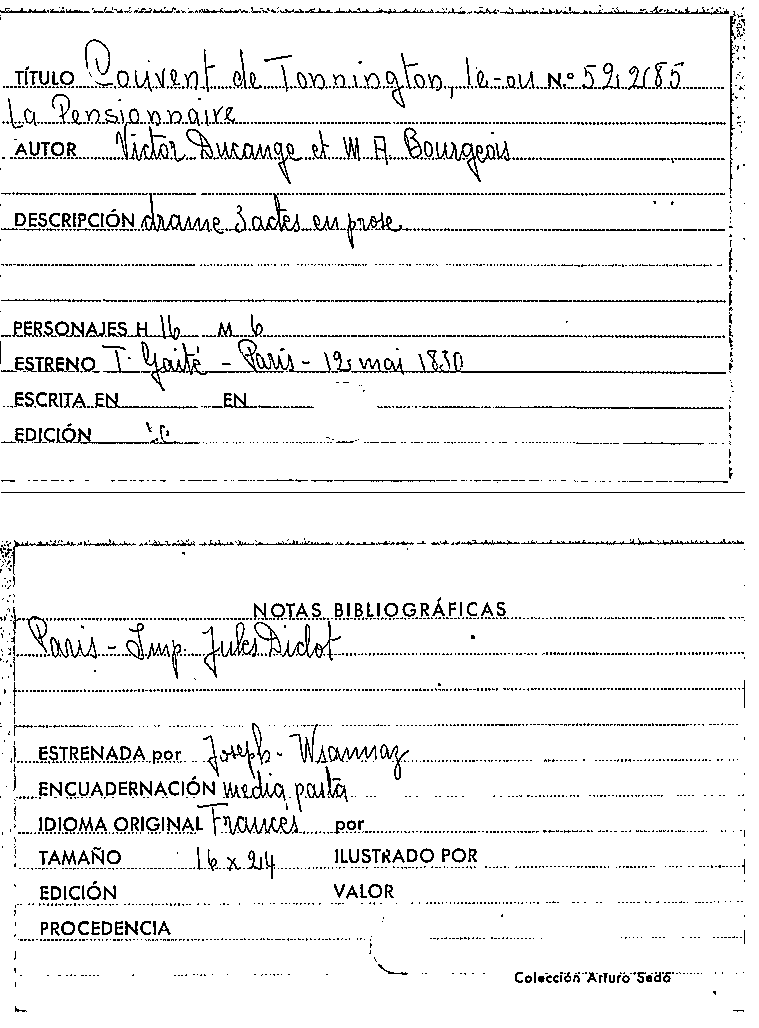 TÍTULO Couvent de Tonnington, le-ou Nº 52,2185
La Pensionnaire
AUTOR Victor Ducange et M A. Bourgeois
DESCRIPCIÓN drame 3 actes en prose
PERSONAJES H 16 M 6
ESTRENO T. Gaité - Paris - 12, mai 1830
ESCRITA EN EN
EDICIÓN
NOTAS BIBLIOGRÁFICAS
Paris - Imp. Jules Didot
ESTRENADA por Joseph-
ENCUADERNACIÓN media pasta
IDIOMA ORIGINAL Francés por
TAMAÑO 16 x 24 ILUSTRADO POR
EDICIÓN VALOR
PROCEDENCIA
Colección Arturo Sedó